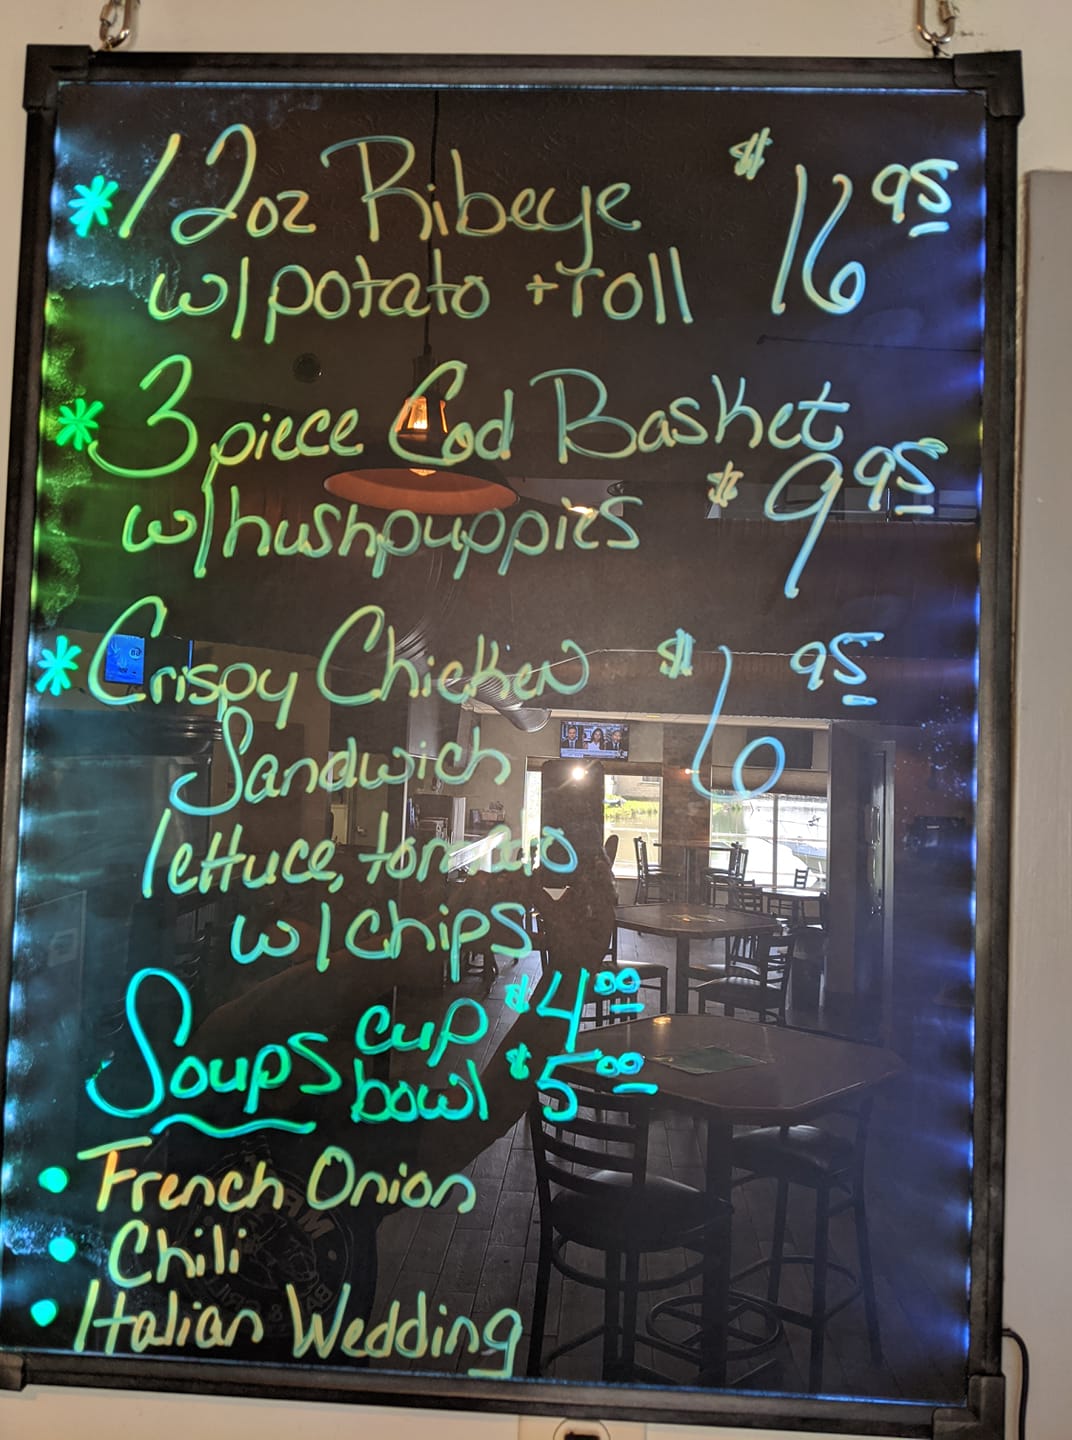 * 12oz Ribeye $16 95
w/potato + roll
* 3 piece Cod Basket
w/hushpuppies $9 95
* Crispy Chicken $6 95
Sandwich
lettuce, tomato
w/chips
Soups cup $4 00
bowl $5 00
• French Onion
• Chili
• Italian Wedding